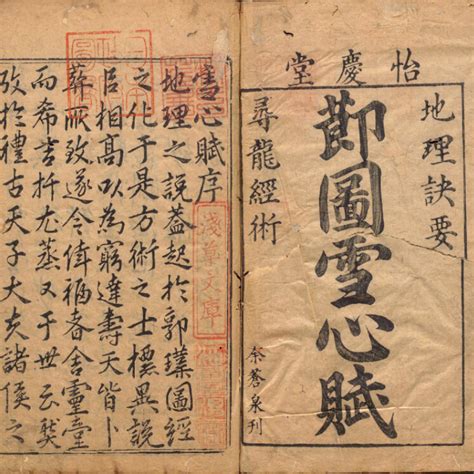 怡慶堂
地理訣要
莭圖雪心賦
尋龍經術
余蒼泉刊
雪心賦序
地理之説蓋起於郭璞圖經
之化于是方術之士標異説
相高以為窮達壽夭皆卜
葬所致遂令福者舍靈堂
而希吉又于世云
攷於禮古天子大夫諸侯之
淺草文庫